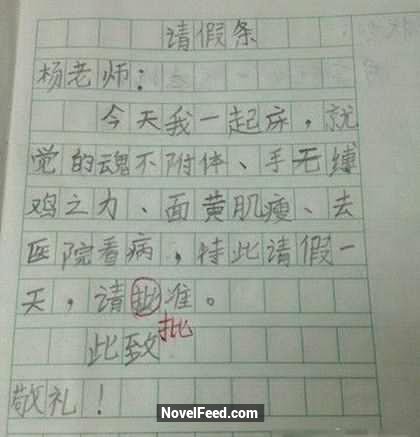 请假条
杨老师：
今天我一起床，就
觉的魂不附体、手无缚
鸡之力、面黄肌瘦、去
医院看病，特此请假一
天，请批准。
批
此致
敬礼！
NovelFeed.com